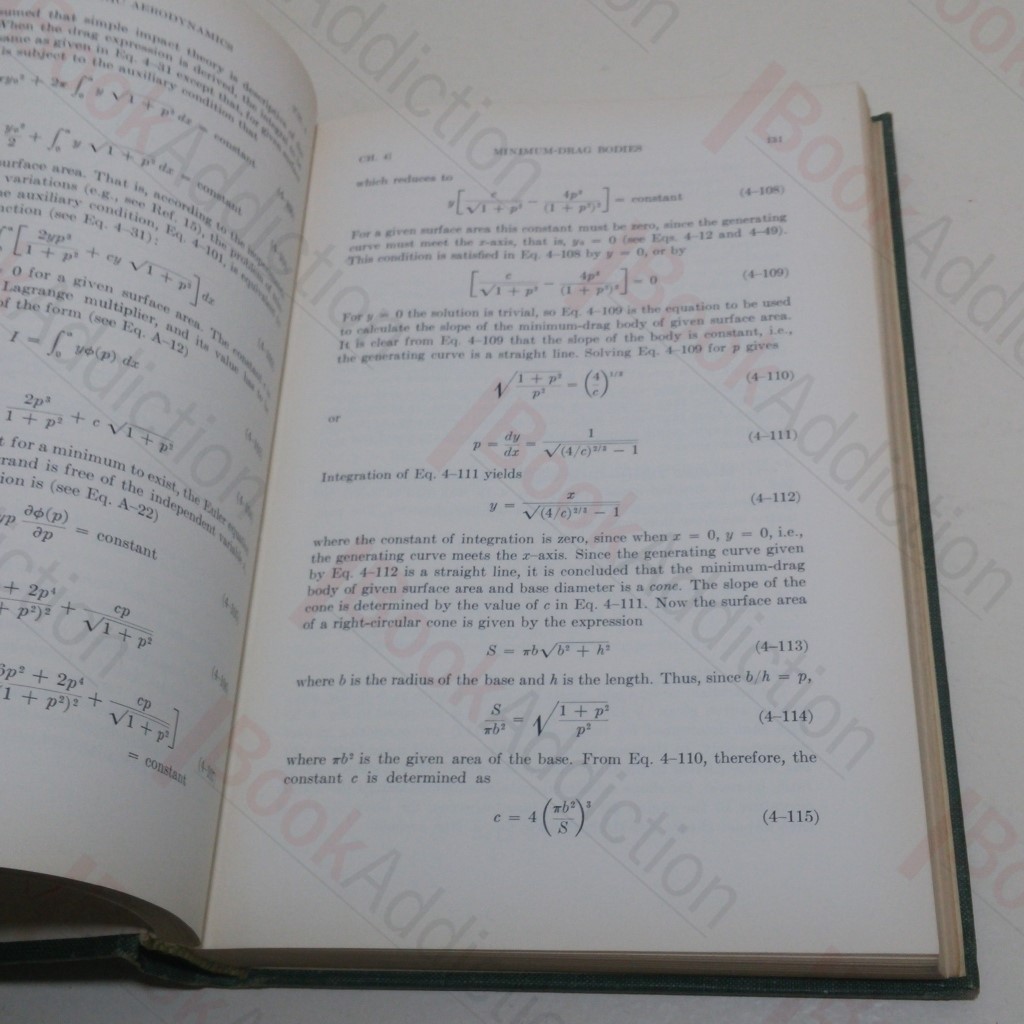 AERODYNAMICS
sumed that simple impact theory is
When the drag expression is derived, the integral
same as given in Eq. 4–31 except that, for given
is subject to the auxiliary condition that
y₀² + 2π ∫₀ᵃ y √1 + p² dx = constant
y₀²/2 + ∫₀ᵃ y √1 + p² dx = constant
surface area. That is, according to the
variations (e.g., see Ref. 15), the problem of
auxiliary condition, Eq. 4–101, is
nction (see Eq. 4–31):
[2yp³/(1 + p²) + cy √1 + p²] dx
0 for a given surface area. The
Lagrange multiplier, and its value
of the form (see Eq. A–12)
I = ∫₀ᵃ yφ(p) dx
2p³/(1 + p²) + c √1 + p²
t for a minimum to exist, the Euler
rand is free of the independent variable
ion is (see Eq. A–22)
yp ∂φ(p)/∂p = constant
+ 2p⁴/(+ p²)² + cp/√1 + p²
6p² + 2p⁴/(1 + p²)² + cp/√1 + p²]
= constant
CH. 4) MINIMUM-DRAG BODIES 131
which reduces to
y[c/√1 + p² − 4p³/(1 + p²)²] = constant (4–108)
For a given surface area this constant must be zero, since the generating
curve must meet the x-axis, that is, y₀ = 0 (see Eqs. 4–12 and 4–49).
This condition is satisfied in Eq. 4–108 by y = 0, or by
[c/√1 + p² − 4p³/(1 + p²)²] = 0 (4–109)
For y = 0 the solution is trivial, so Eq. 4–109 is the equation to be used
to calculate the slope of the minimum-drag body of given surface area.
It is clear from Eq. 4–109 that the slope of the body is constant, i.e.,
the generating curve is a straight line. Solving Eq. 4–109 for p gives
√((1 + p²)/p²) = (4/c)^1/3 (4–110)
or
p = dy/dx = 1/√((4/c)^2/3 − 1) (4–111)
Integration of Eq. 4–111 yields
y = x/√((4/c)^2/3 − 1) (4–112)
where the constant of integration is zero, since when x = 0, y = 0, i.e.,
the generating curve meets the x-axis. Since the generating curve given
by Eq. 4–112 is a straight line, it is concluded that the minimum-drag
body of given surface area and base diameter is a cone. The slope of the
cone is determined by the value of c in Eq. 4–111. Now the surface area
of a right-circular cone is given by the expression
S = πb√b² + h² (4–113)
where b is the radius of the base and h is the length. Thus, since b/h = p,
S/πb² = √((1 + p²)/p²) (4–114)
where πb² is the given area of the base. From Eq. 4–110, therefore, the
constant c is determined as
c = 4 (πb²/S)³ (4–115)
BookAddiction